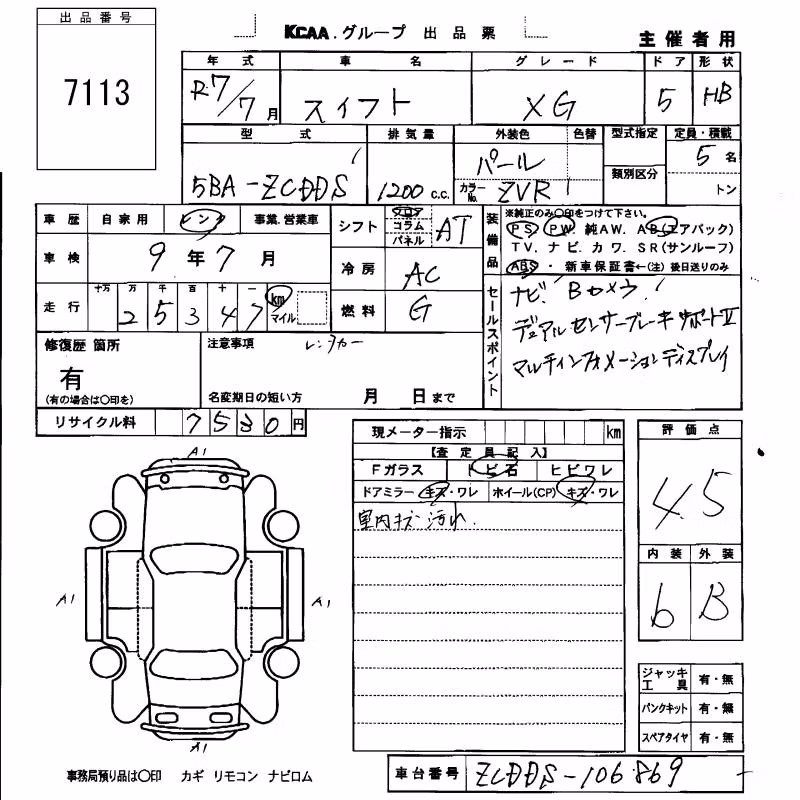 出品番号
7113
KCAA.グループ 出品票
主催者用
年式 車名 グレード ドア 形状
R.7/7月 スイフト XG 5 HB
型式 排気量 外装色 色替 型式指定 定員・積載
5BA-ZCDDS 1200 c.c. パール 類別区分 5名
カラーNo. ZVR トン
車歴 自家用 レンタ 事業.営業車
車検 9年7月
走行 十万 万 千 百 十 一
2 5 3 4 7 km マイル
シフト フロア コラム パネル AT
冷房 AC
燃料 G
装備品
※純正のみ○印をつけて下さい。
PS. PW. 純AW. AB(エアバック)
TV. ナビ. カワ. SR(サンルーフ)
ABS・ 新車保証書←(注) 後日送りのみ
セールスポイント
ナビ! Bカメラ!
デュアルセンサーブレーキサポートⅡ
マルチインフォメーションディスプレイ
修復歴 箇所
有
(有の場合は○印を)
注意事項 レンタカー
名変期日の短い方 月 日まで
リサイクル料 7530円
現メーター指示 km
【査定員記入】
Fガラス トビ石 ヒビワレ
ドアミラー キズ・ワレ ホイール(CP) キズ・ワレ
室内キズ汚れ.
評価点
4.5
内装 外装
b B
A1
A1
A1
A1
ジャッキ工具 有・無
パンクキット 有・無
スペアタイヤ 有・無
事務局預り品は○印 カギ リモコン ナビロム
車台番号 ZCDDS-106869